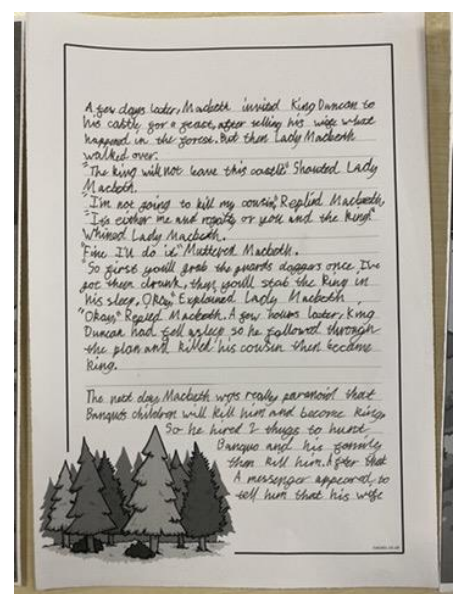 A few days later, Macbeth invited King Duncan to
his castle for a feast, after telling his wife what
happend in the forest. But then Lady Macbeth
walked over.
"The king will not leave this castle" Shouted Lady
Macbeth.
"I'm not going to kill my cousin," Replied Macbeth,
"It's either me and royalty or you and the king!"
Whined Lady Macbeth.
"Fine I'll do it" Muttered Macbeth.
"So first you'll grab the guards daggers once I've
got them drunk, then you'll stab the King in
his sleep, Okay" Explained Lady Macbeth
"Okay," Replied Macbeth. A few hours later, King
Duncan had fell asleep so he followed through
the plan and killed his cousin then became
King.
The next day Macbeth was really paranoid that
Banquos children will kill him and become King,
So he hired 2 thugs to hunt
Banquo and his family
then kill him. After that
A messenger appeared, to
tell him that his wife